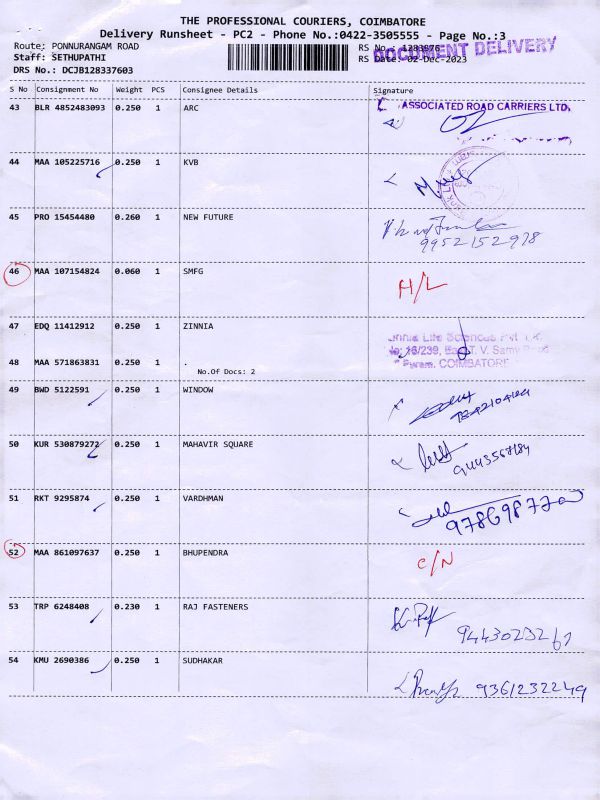 THE PROFESSIONAL COURIERS, COIMBATORE
Delivery Runsheet - PC2 - Phone No.:0422-3505555 - Page No.:3
Route: PONNURANGAM ROAD
RS No.: 1283376
DOCUMENT DELIVERY
Staff: SETHUPATHI
RS Date: 02-Dec-2023
DRS No.: DCJB128337603
S No Consignment No Weight PCS Consignee Details Signature
43 BLR 4852483093 0.250 1 ARC
ASSOCIATED ROAD CARRIERS LTD.
44 MAA 105225716 0.250 1 KVB
45 PRO 15454480 0.260 1 NEW FUTURE
9952152978
46 MAA 107154824 0.060 1 SMFG H/L
47 EDQ 11412912 0.250 1 ZINNIA
Life Sciences Pvt
16/239, T. V. Samy
COIMBATORE
48 MAA 571863831 0.250 1 .
No.Of Docs: 2
49 BWD 5122591 0.250 1 WINDOW
50 KUR 530879272 0.250 1 MAHAVIR SQUARE
51 RKT 9295874 0.250 1 VARDHMAN
52 MAA 861097637 0.250 1 BHUPENDRA C/N
53 TRP 6248408 0.230 1 RAJ FASTENERS
9443023261
54 KMU 2690386 0.250 1 SUDHAKAR
9361232249